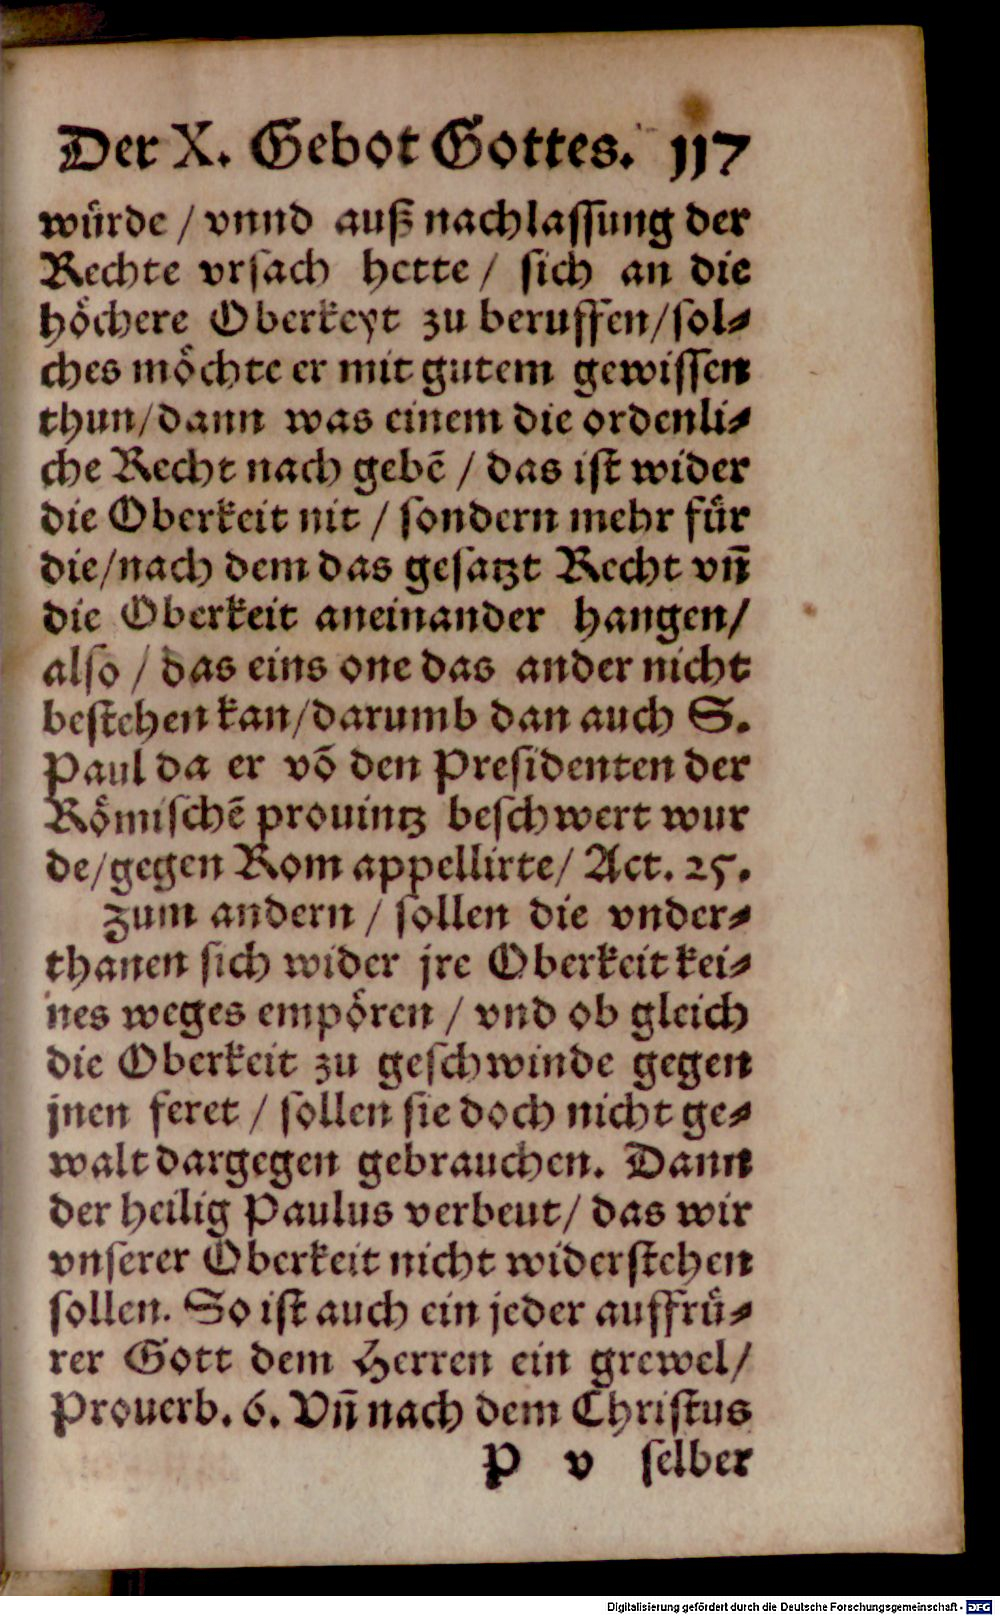 Der X. Gebot Gottes. 117
würde / vnnd auß nachlassung der
Rechte vrsach hette / sich an die
höchere Oberkeyt zu beruffen/sol-
ches möchte er mit gutem gewissen
thun/dann was einem die ordenli-
che Recht nach gebē / das ist wider
die Oberkeit nit / sondern mehr für
die/nach dem das gesatzt Recht vñ
die Oberkeit aneinander hangen/
also / das eins one das ander nicht
bestehen kan/darumb dan auch S.
Paul da er võ den Presidenten der
Römischē prouintz beschwert wur
de/gegen Rom appellirte/ Act. 25.
Zum andern / sollen die vnder-
thanen sich wider jre Oberkeit kei-
nes weges empören / vnd ob gleich
die Oberkeit zu geschwinde gegen
jnen feret / sollen sie doch nicht ge-
walt dargegen gebrauchen. Dann
der heilig Paulus verbeut/ das wir
vnserer Oberkeit nicht widerstehen
sollen. So ist auch ein jeder auffrü-
rer Gott dem Herren ein grewel/
Prouerb. 6. Vñ nach dem Christus
P v selber
Digitalisierung gefördert durch die Deutsche Forschungsgemeinschaft - DFG